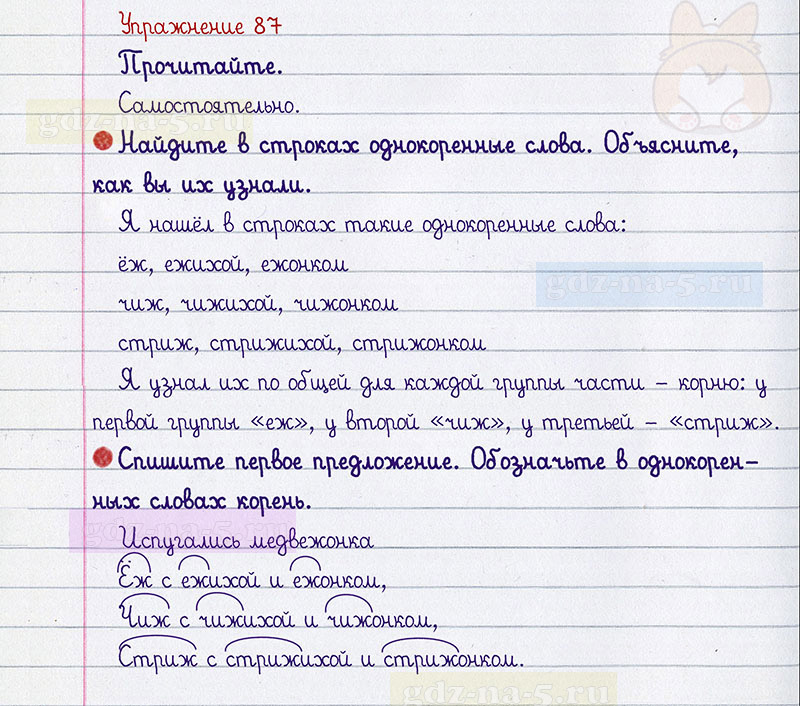 Упражнение 87
Прочитайте.
Самостоятельно.
gdz-na-5.ru
Найдите в строках однокоренные слова. Объясните,
как вы их узнали.
Я нашёл в строках такие однокоренные слова:
ёж, ежихой, ежонком
gdz-na-5.ru
чиж, чижихой, чижонком
стриж, стрижихой, стрижонком
Я узнал их по общей для каждой группы части – корню: у
первой группы «еж», у второй «чиж», у третьей – «стриж».
Спишите первое предложение. Обозначьте в однокорен-
ных словах корень.
gdz-na-5.ru
Испугались медвежонка
Ёж с ежихой и ежонком,
Чиж с чижихой и чижонком,
Стриж с стрижихой и стрижонком.
gdz-na-5.ru